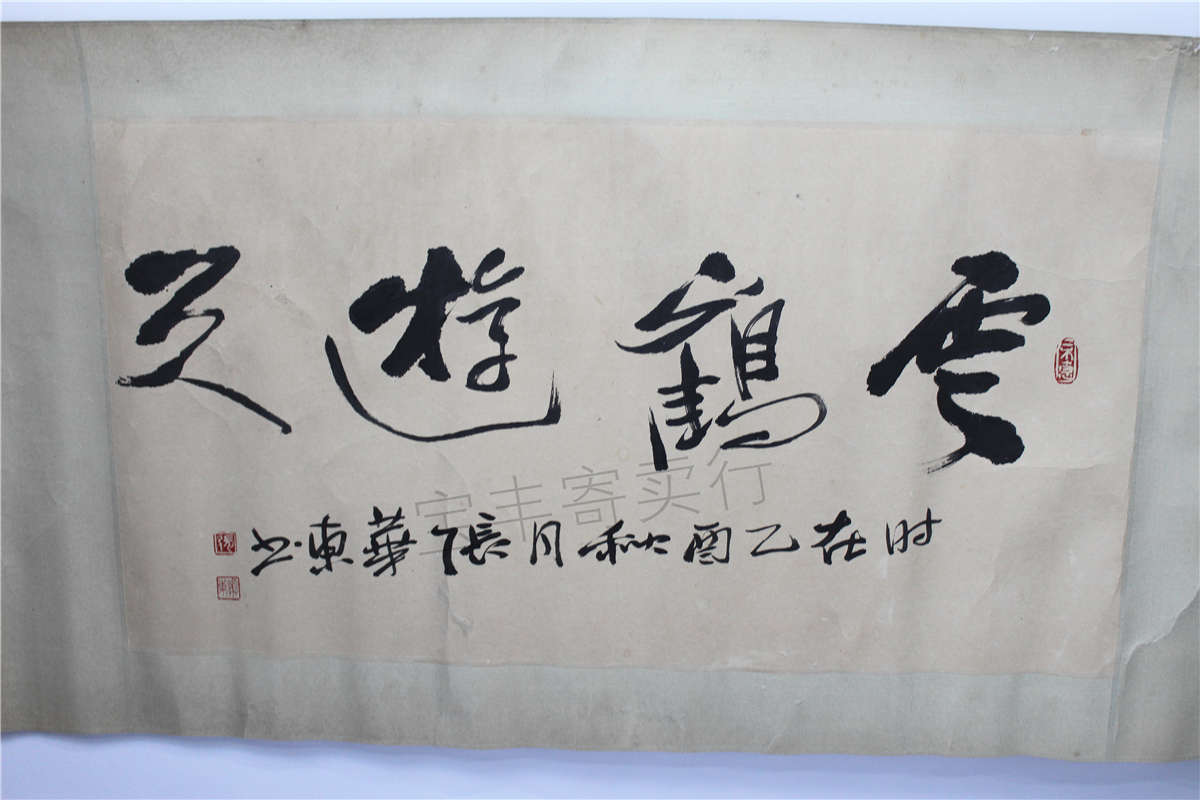 雲鶴遊天
时在乙酉秋月張華東书
宝丰寄卖行